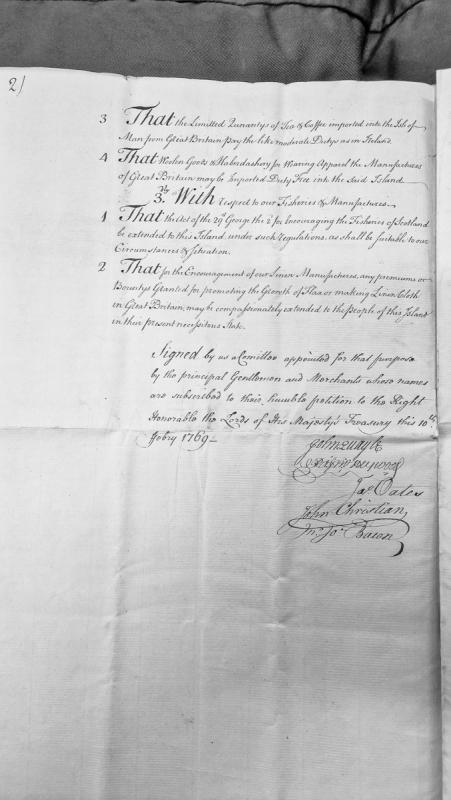 2)
3 That the Limitted Quantitys of Tea & Coffee imported into the Isle of
Man from Great Britain Pay the like moderate Dutys as in Ireland.
4 That Woolen Goods & Haberdashery for Wearing Apparel the Manufactures
of Great Britain may be Imported Duty Free into the said Island
3.ly With respect to our Fisheries & Manufactures.
1 That the Act of the 29 George the 2d for Encouraging the Fisheries of Scotland
be extended to this Island under such Regulations, as shall be suitable to our
Circumstances & Situation.
2 That for the Encouragement of our Linen Manufactures, any premiums or
Bountys Granted for promoting the Growth of Flax or making Linen Cloth
in Great Britain, may be compassionately extended to the People of this Island
in their present necessitous State.
Signed by us a Comittee appointed for that purpose
by the principal Gentlemen and Merchants whose names
are subscribed to their humble petition to the Right
Honorable the Lords of His Majesty's Treasury this 10th
Febry 1769
John Quayle
Jas Oates
John Christian
Jos Bacon